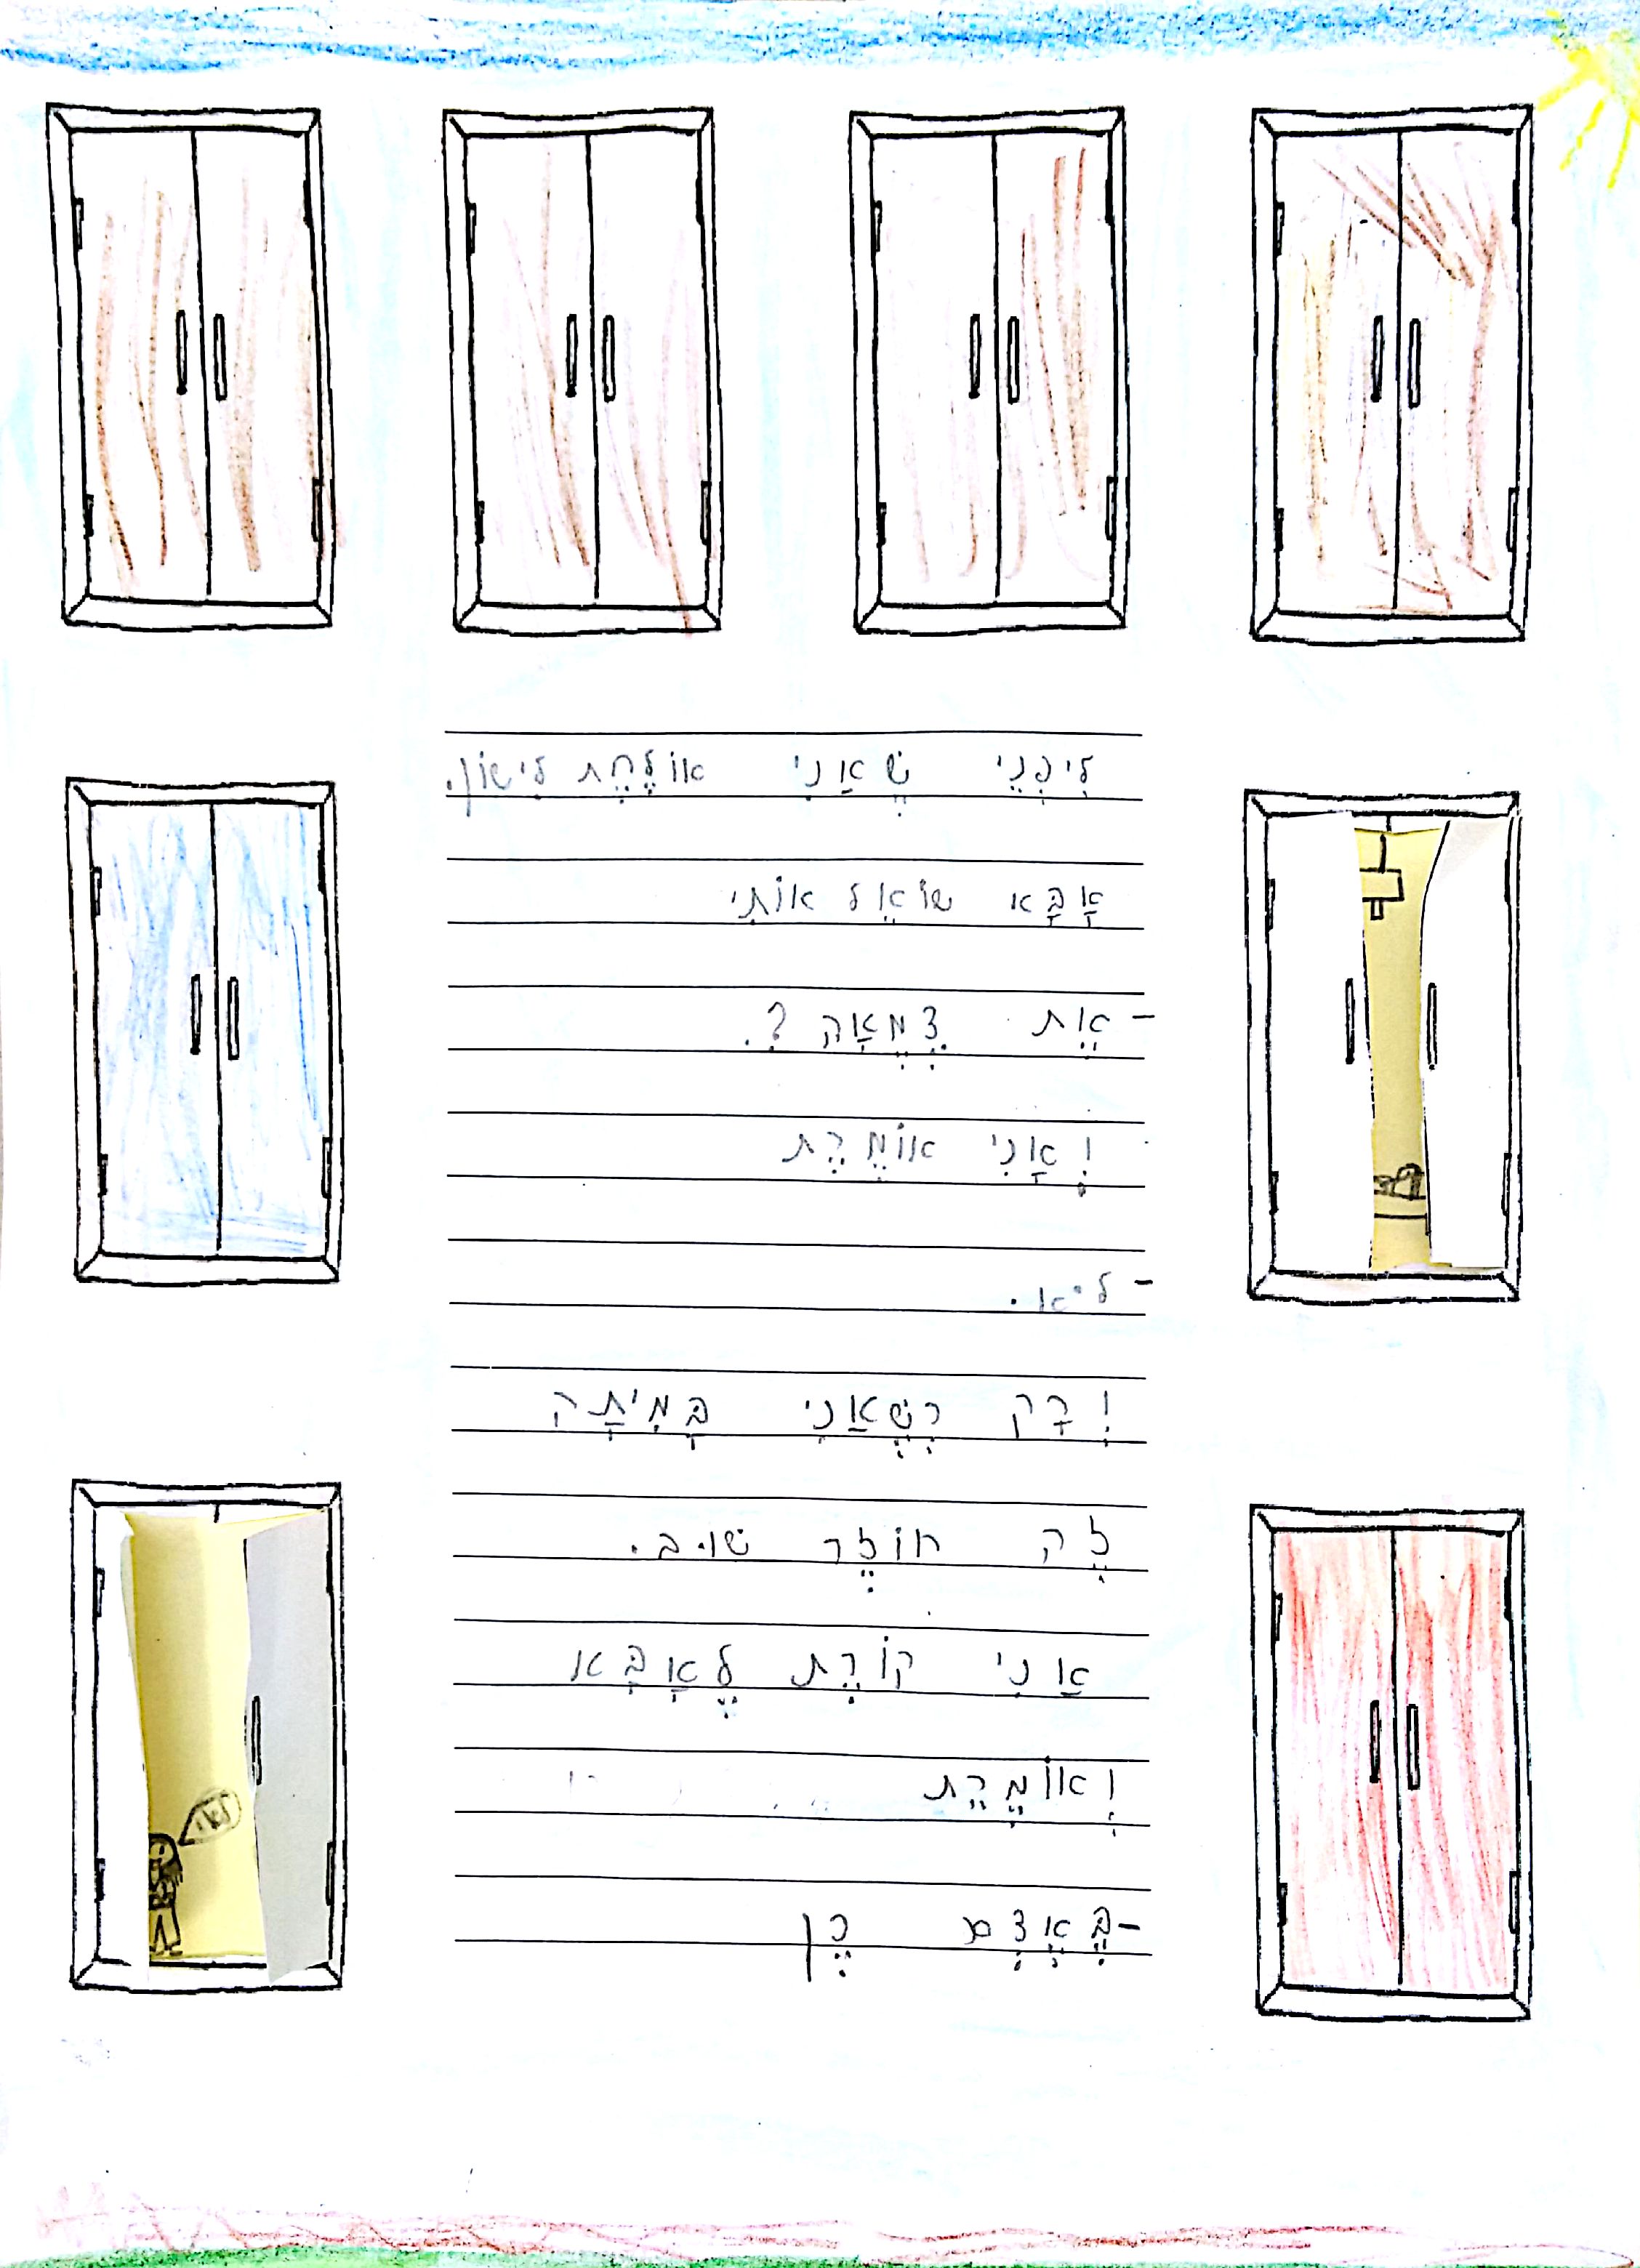 לִיפְנֵי שֶׁאַנִי אוֹלֶחֶת לִישׁוֹן.
אָבָּא שׁוֹאֵל אוֹתִי
- אֶת צְמֵאָה ?.
וְאָנִי אוֹמֶרֶת
- לֹיא.
וְרַק כְשֶׁאַנִי בָּמִיתָה
זֶה חוֹזֶר שׁוּב.
אַנִי קוֹרֶת לֶאָבָּא
וְאוֹמֶרֶת
- בֶּאֶצֶם כֶּן